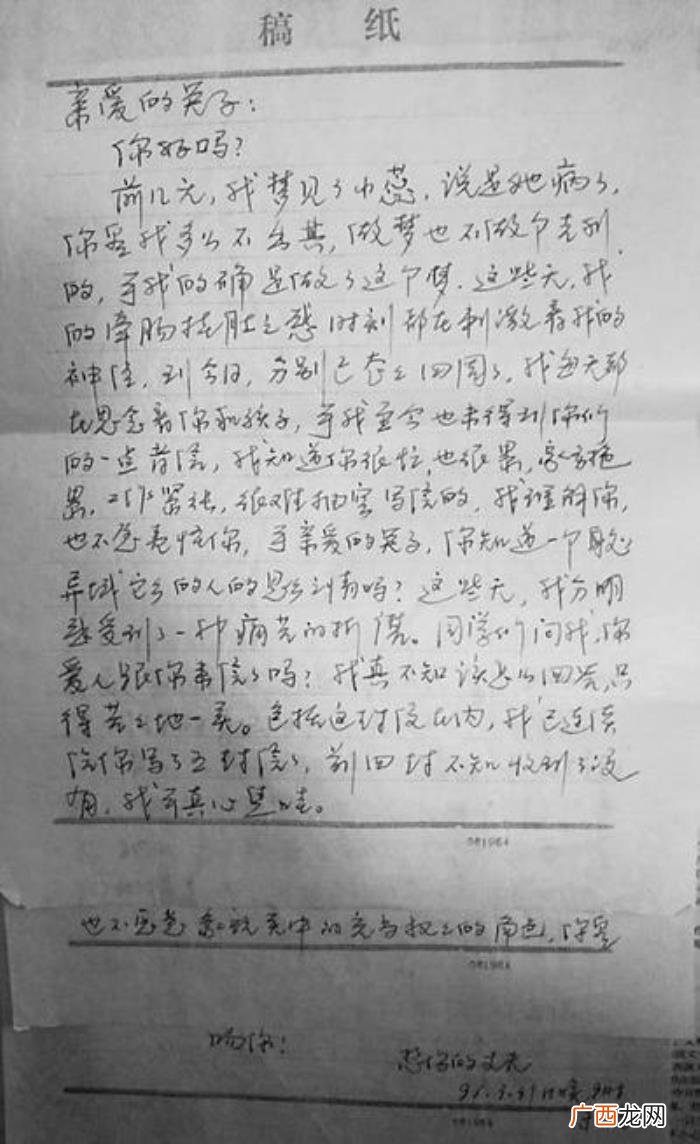 稿 纸
亲爱的英子:
你好吗?
前几天,我梦见了小蕊,说是她病了,
你罢我多么不吉其,做梦也不做个吉利
的,可我的确是做了这个梦.这些天,我
的牵肠挂肚之愁时刻都在刺激着我的
神经,到今日,分别已整整四周了,我每天都
在思念着你和孩子,可我至今也未得到你们
的一点音信,我知道你很忙,也很累,家务拖
累,工作紧张,很难抽空写信的,我理解你,
也不急责怪你,可亲爱的英子,你知道一个身处
异域它乡的人的思乡之苦吗?这些天,我分明
感受到了一种痛苦的折磨。同学们问我,你
爱人跟你来信了吗?我真不知该怎么回答,只
得苦苦地一笑。包括这封信在内,我已连续
给你写了五封信了,前四封不知收到了没
有,我可真心焦哇。
081964
也不愿意 的角色,你是
081964
吻你!
想你的丈夫
广西龙网